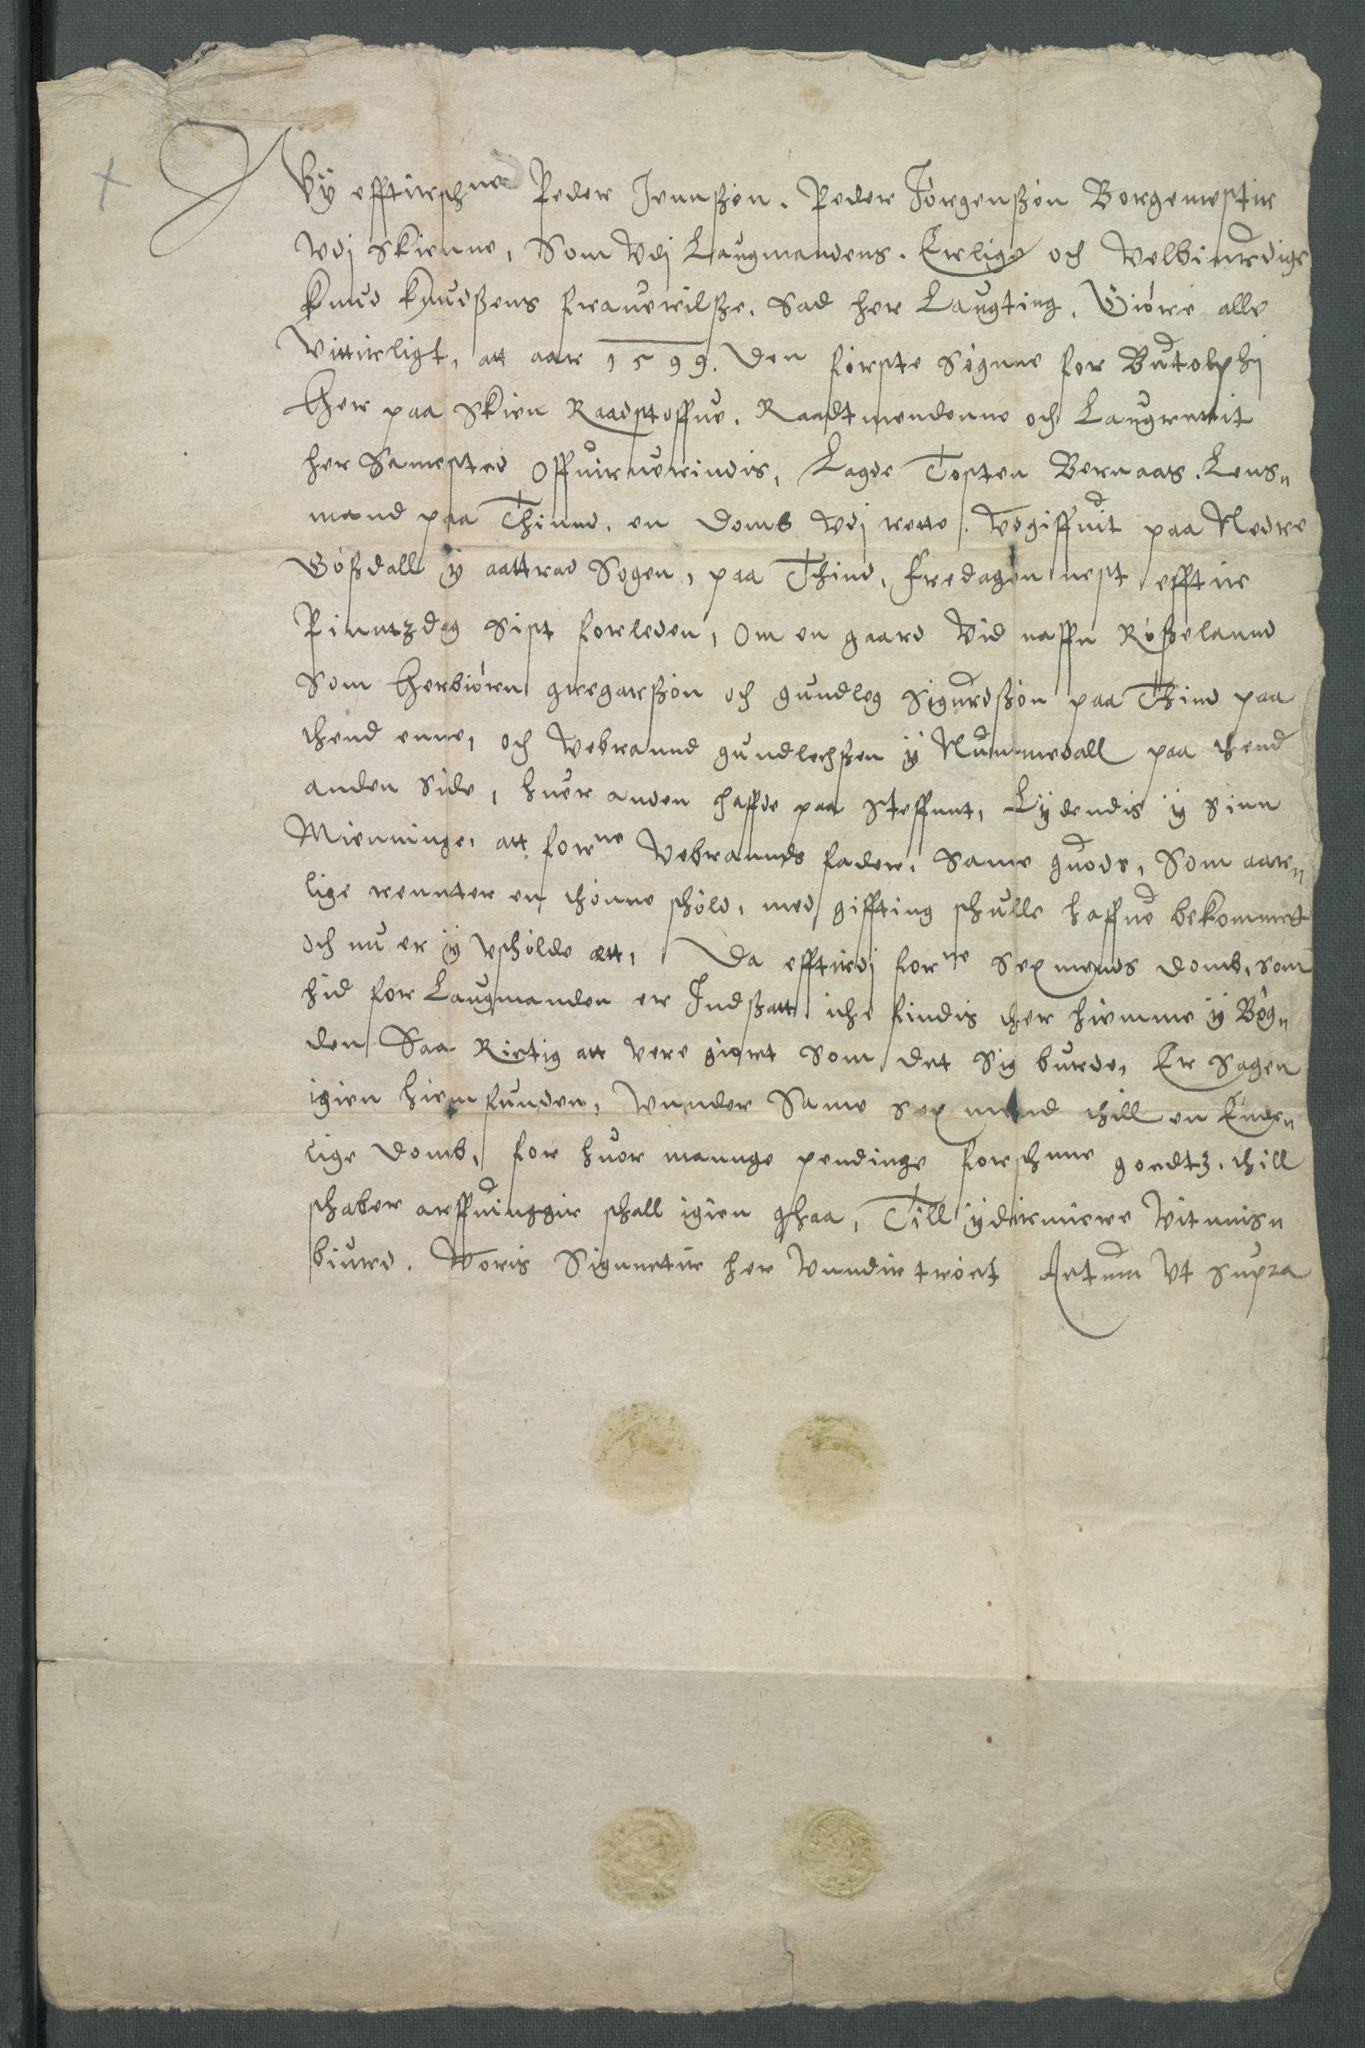 Wÿ effterschne Peder Jennßøn. Peder Jørgenßøn Borgemester
vdj Skienne, Som vdj Laugmandens. Erlige och Velbiurdige
Knud Knudßens frauerilße. Sad her Laugting. Giøre alle
Vitterligt, att aar 1599. den første Søgnne for Butolphj
Her paa Skien Raadstoffue. Raadtmendenne och Laugrettit
her Samested Offuerverindis, Lagde Tosten Bernaas. Lens„
mand paa Thinnd. en Domb vdj rette. Vdgiffuit paa Nedre
Gøßdall ÿ aattrad Sogen, paa Thind, fredagen nest effter
Pinntzdag Sist forleden, Om en gaard Vid naffn Røßelannd
Som Herbiørn gregarßøn och gundleg Sigurdßøn paa Thind paa
thend enne, och Vebrannd gundlechßen ÿ Nummedall paa thend
anden Side, huer anden haffde paa Steffnt, Lÿdendis ÿ Sinn
Mienninge, att forne Vebrannds fader, Same guods, Som aar„
lige rennter en thønne schøld, med giffting schulle haffue bekommet
och nu er ÿ vschølde ætt, Da efftterdj forne Sex mends domb, som
hid for Laugmanden er Indsatt iche findis ther hiemme ÿ Bøg„
den Saa Rictig att vere giort Som det Sig burde, Er Sagen
igien hiem funden, Wunder Same Sex mend thill en Ende„
lige Domb, for huor mannge pendinge forschne goedtz. thill
schaber arffuingger schall igien ghaa, Till ÿdermiere Vitnnis„
biurd. Woris Signneter her Wunder trøct Actum Vt Supra